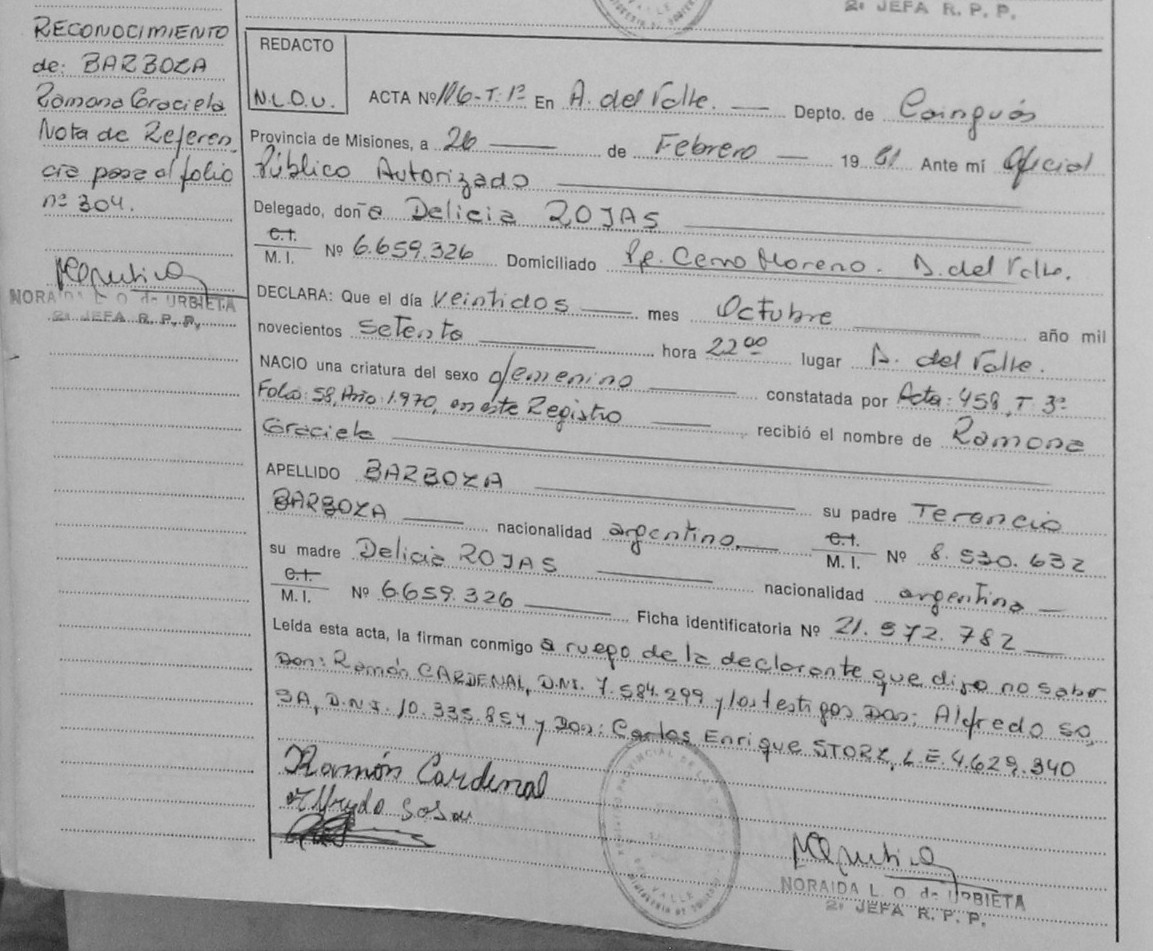 2º JEFA R. P. P.
RECONOCIMIENTO
de: BARBOZA
Ramona Graciela
Nota de Referen
cia pase al folio
nº 304.
NORAIDA L. O. de URBIETA
2º JEFA R. P. P.
REDACTO
N.L.O.U.
ACTA Nº 116-T.1º En A. del Valle. Depto. de Cainguás
Provincia de Misiones, a 26 de Febrero 19 81 Ante mí Oficial
Público Autorizado
Delegado, doña Delicia ROJAS
C.I.
M. I. Nº 6.659.326 Domiciliado Pje. Cerro Moreno. A. del Valle.
DECLARA: Que el día veintidos mes Octubre año mil
novecientos setenta hora 22 00 lugar A. del Valle.
NACIO una criatura del sexo femenino constatada por Acta: 458, T. 3º
Folio: 58, Año: 1.970, en este Registro recibió el nombre de Ramona
Graciela
APELLIDO BARBOZA su padre Terencio
BARBOZA nacionalidad argentina C.I.
M. I. Nº 8.530.632
su madre Delicia ROJAS nacionalidad argentina
C.I.
M. I. Nº 6.659.326 Ficha identificatoria Nº 21.972.782
Leída esta acta, la firman conmigo a ruego de la declarante que dijo no saber
Don: Ramón CARDENAL, D.N.I. 7.584.299 y los testigos Don: Alfredo SO
SA, D.N.I. 10.335.854 y Don: Carlos Enrique STORZ, L.E. 4.629.340
Ramón Cardenal
Alfredo Sosa
NORAIDA L. O. de URBIETA
2º JEFA R. P. P.